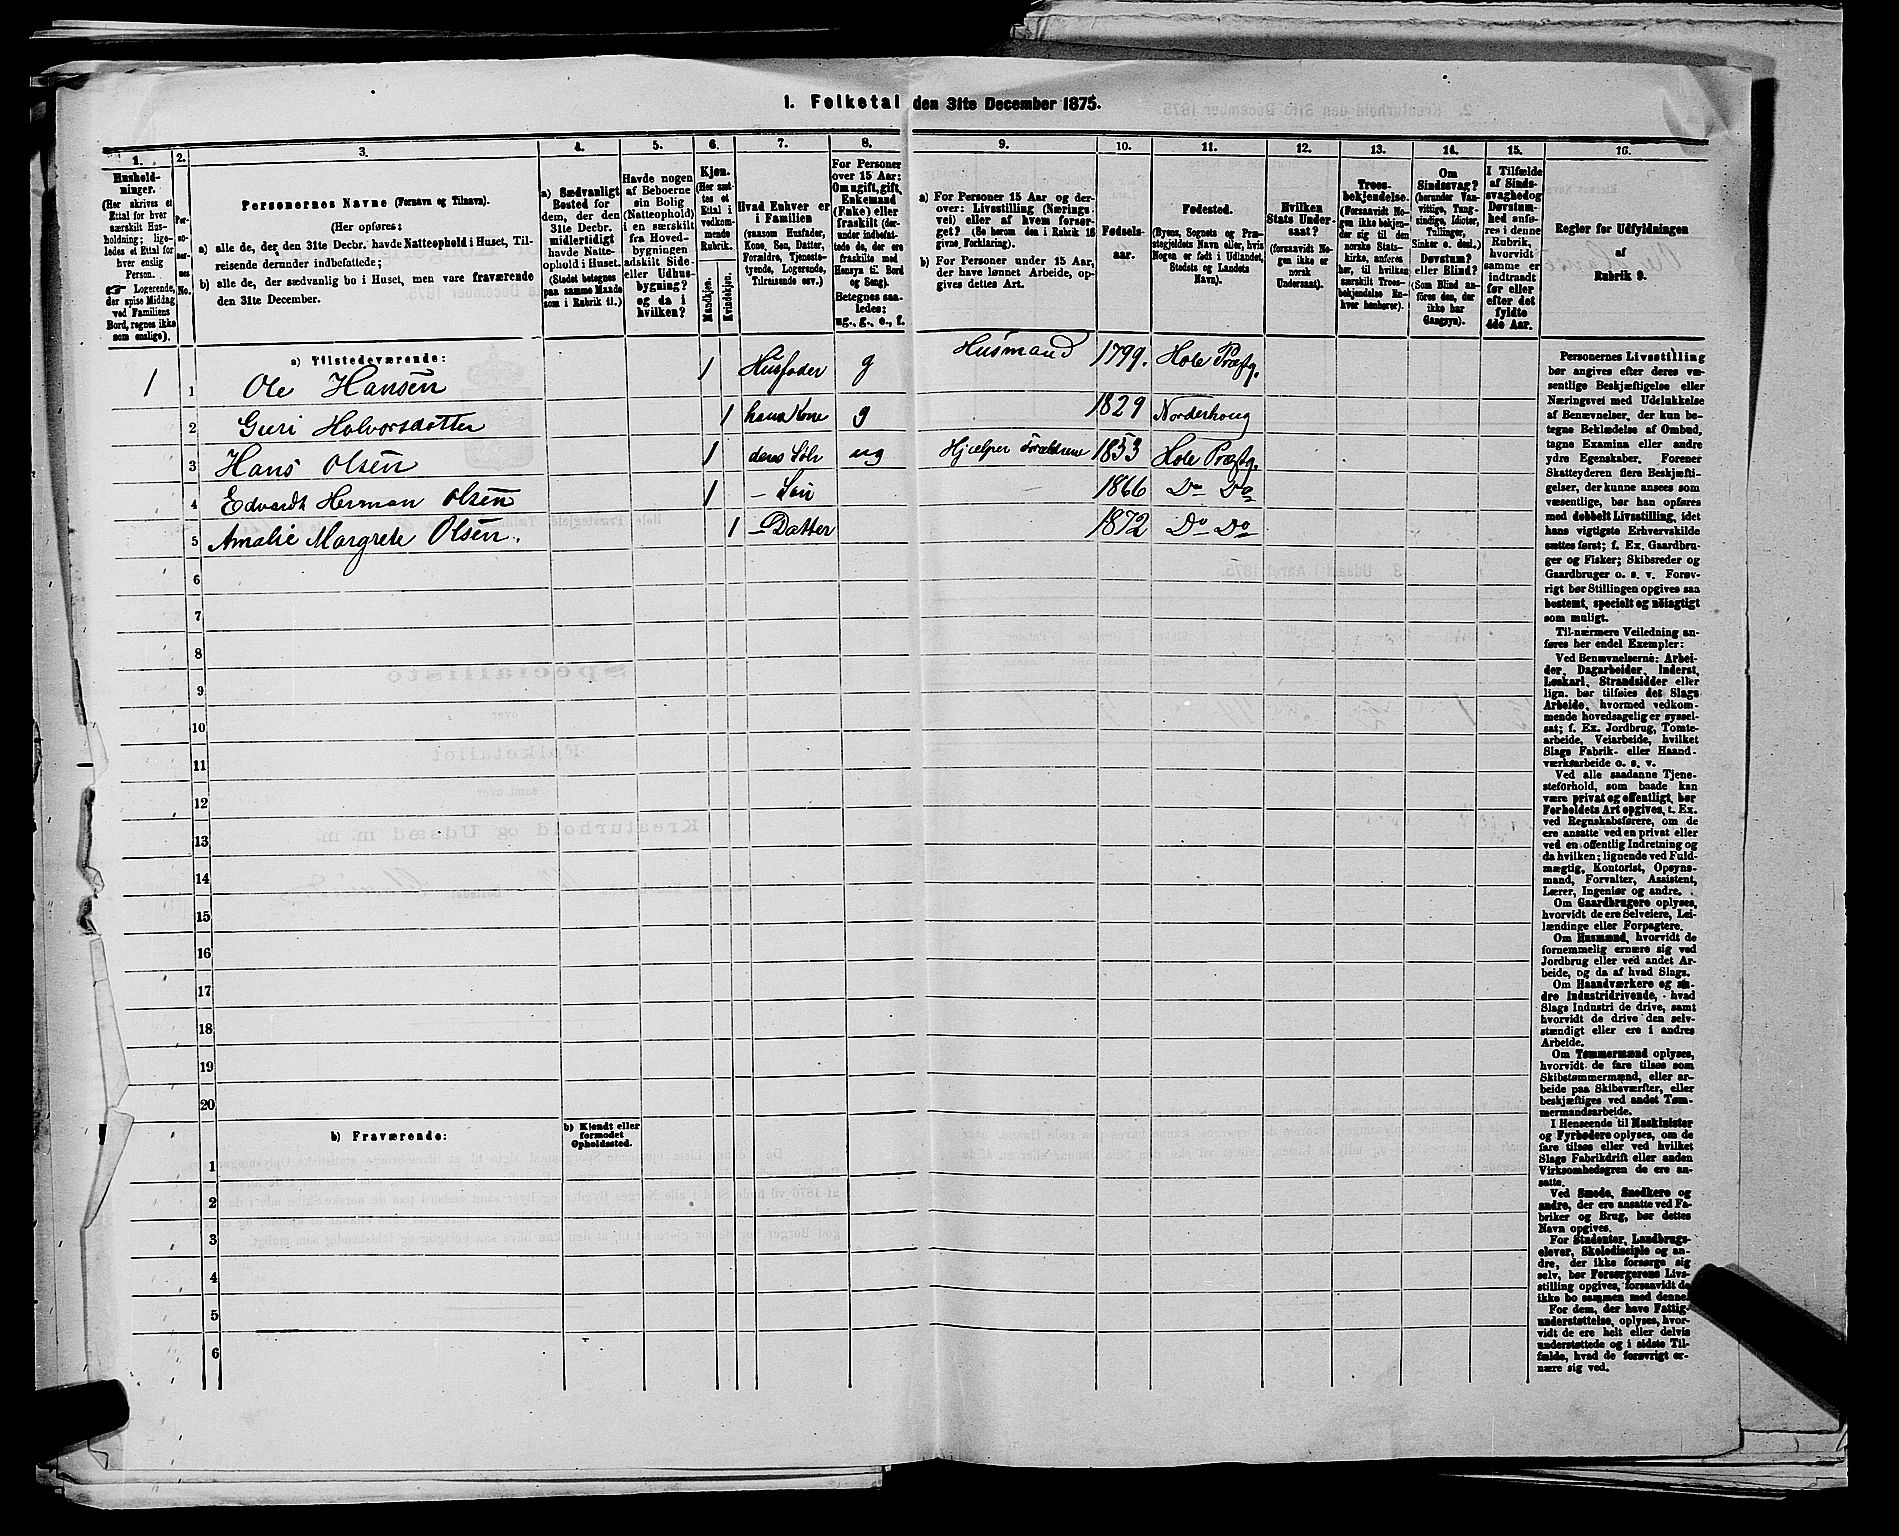 1. Folketal den 31te December 1875.
1.
2.
3.
4.
5.
6.
7.
8.
9.
10.
11.
12.
13.
14.
15.
16.
Hushold-
ninger.
(Her skrives et
Ettal for hver
særskilt Hus-
holdning; lige-
ledes et Ettal for
hver enslig
Person.
Logerende,
der spise Middag
ved Familiens
Bord, regnes ikke
som enslige).
Per-
so-
ner-
nes
No.
Personernes Navne (Fornavn og Tilnavn).
(Her opføres:
a) alle de, der den 31te Decbr. havde Natteophold i Huset, Til-
reisende derunder indbefattede;
b) alle de, der sædvanlig bo i Huset, men vare fraværende
den 31te December.
a) Sædvanligt
Bosted for
dem, der den
31te Decbr.
midlertidigt
havde Natte-
ophold i Huset.
(Stedet betegnes
paa samme Maade
som i Rubrik 11.)
Havde nogen
af Beboerne
sin Bolig
(Natteophold)
i en særskilt
fra Hoved-
bygningen
adskilt Side-
eller Udhus-
bygning?
og da i
hvilken?
Kjøn.
(Her sæt-
tes et
Ettal i
vedkom-
mende
Rubrik.
Mandkjøn.
Kvindekjøn.
Hvad Enhver er
i Familien
(saasom Husfader,
Kone, Søn, Datter,
Forældre, Tjeneste-
tyende, Logerende,
Tilreisende osv.)
For Personer
over 15 Aar:
Om ugift, gift,
Enkemand
(Enke) eller
fraskilt (der-
under indbefat-
tede de, der ere
fraskilte med
Hensyn til Bord
og Seng).
Betegnes saa-
ledes:
ug., g., e., f.
a) For Personer 15 Aar og der-
over: Livsstilling (Nærings-
vei) eller af hvem forsør-
get? (Se herom den i Rubrik 16
givne Forklaring).
b) For Personer under 15 Aar,
der have lønnet Arbeide, op-
gives dettes Art.
Fødsels-
aar.
Fødested.
(Byens, Sognets og Præ-
stegjeldets Navn eller, hvis
Nogen er født i Udlandet,
Stedets og Landets
Navn).
Hvilken
Stats Under-
saat?
(forsaavidt No-
gen ikke er
norsk
Undersaat).
Troes-
bekjendelse.
(Forsaavidt No-
gen ikke bekjen-
der sig til den
norske Stats-
kirke, anføres
her, til hvilken
særskilt Troes-
bekjendelse En-
hver henhører).
Om
Sindssvag?
(herunder Van-
vittige, Tung-
sindige, Idioter,
Tullinger,
Sinker o. desl.)
Døvstum?
eller Blind?
(Som Blind an-
føres den, der
ikke har
Gangsyn).
I Tilfælde
af Sinds-
svaghed og
Døvstum-
hed anfø-
res i denne
Rubrik,
hvorvidt
samme er
indtraadt
før eller
efter det
fyldte
4de Aar.
Regler for Udfyldningen
af
Rubrik 9.
a) Tilstedeværende:
1 1 Ole Hansen 1 Husfader g Husmand 1799. Hole Præstg.
2 Guri Halvorsdatter 1 hans Kone g 1829 Norderhoug
3 Hans Olsen 1 deres Søn ug Hjælper Forældrene 1853 Hole Præstg.
4 Edvardt Herman Olsen 1 – Søn 1866 Do Do
5 Amalie Margrete Olsen. 1 – Datter 1872 Do Do
6
7
8
9
10
11
12
13
14
15
16
17
18
19
20
b) Fraværende:
b) Kjendt eller
formodet
Opholdssted.
1
2
3
4
5
6
Personernes Livsstilling
bør angives efter deres væ-
sentlige Beskjæftigelse eller
Næringsvei med Udelukkelse
af Benævnelser, der kun be-
tegne Beklædelse af Ombud,
tagne Examina eller andre
ydre Egenskaber. Forener
Skatteyderen flere Beskjæfti-
gelser, der kunne ansees som
væsentlige, bør han opføres
med dobbelt Livsstilling, idet
hans vigtigste Erhvervskilde
sættes først; f. Ex. Gaardbru-
ger og Fisker; Skibsreder og
Gaardbruger o. s. v. Forøv-
rigt bør Stillingen opgives saa
bestemt, specielt og nøiagtigt
som muligt.
Til nærmere Veiledning an-
føres her endel Exempler:
Ved Benævnelserne: Arbei-
der, Dagarbeider, Inderst,
Løskarl, Strandsidder eller
lign. bør tilføies det Slags
Arbeide, hvormed vedkom-
mende hovedsagelig er syssel-
sat; f. Ex. Jordbrug, Tomte-
arbeide, Veiarbeide, hvilket
Slags Fabrik- eller Haand-
værksarbeide o. s. v.
Ved alle saadanne Tjene-
steforhold, som baade kan
være privat og offentligt, bør
Forholdets Art opgives, t. Ex.
ved Regnskabsførere, om de
ere ansatte ved en privat eller
ved en offentlig Indretning og
da hvilken; lignende ved Fuld-
mægtig, Kontorist, Opsyns-
mand, Forvalter, Assistent,
Lærer, Ingeniør og andre.
Om Gaardbrugere oplyses,
hvorvidt de ere Selveiere, Lei-
lændinge eller Forpagtere.
Om Husmænd, hvorvidt de
fornemmelig ernære sig ved
Jordbrug eller ved andet Ar-
beide, og da af hvad Slags.
Om Haandværkere og an-
dre Industridrivende, hvad
Slags Industri de drive, samt
hvorvidt de drive den selv-
stændigt eller ere i andres
Arbeide.
Om Tømmermænd oplyses,
hvorvidt de fare tilsøs som
Skibstømmermænd, eller ar-
beide paa Skibsværfter, eller
beskjæftiges ved andet Tøm-
mermandsarbeide.
I Henseende til Maskinister
og Fyrbødere oplyses, om de
fare tilsøs eller ved hvilket
Slags Fabrikdrift eller anden
Virksomhedsgren de ere an-
satte.
Ved Smede, Snedkere og
andre, der ere ansatte ved Fa-
briker og Brug, bør dettes
Navn opgives.
For Studenter, Landbrugs-
elever, Skoledisciple og an-
dre, der ikke forsørge sig
selv, bør Forsørgerens Livs-
stilling opgives, forsaavidt de
ikke bo sammen med denne.
For dem, der have Fattig-
understøttelse, oplyses, hvor-
vidt de ere helt eller delvis
understøttede og i sidste Til-
fælde, hvad de forøvrigt er-
nære sig ved.